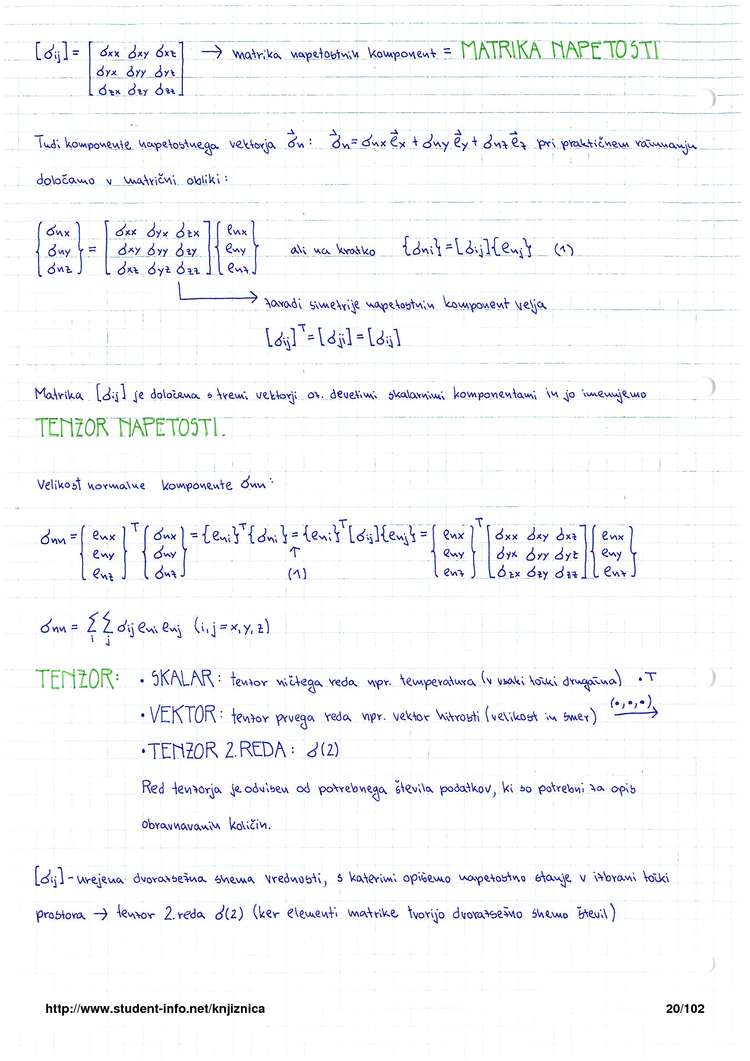 [σij] = [ σxx σxy σxz → matrika napetostnih komponent = MATRIKA NAPETOSTI
σyx σyy σyz
σzx σzy σzz ]
Tudi komponente napetostnega vektorja σ⃗n: σ⃗n = σnx e⃗x + σny e⃗y + σnz e⃗z pri praktičnem računanju
določamo v matrični obliki:
{ σnx σny σnz } = [ σxx σyx σzx
σxy σyy σzy
σxz σyz σzz ] { enx eny enz } ali na kratko {σni} = [σij]{enj} (1)
zaradi simetrije napetostnih komponent velja
[σij]ᵀ = [σji] = [σij]
Matrika [σij] je določena s tremi vektorji oz. devetimi skalarnimi komponentami in jo imenujemo
TENZOR NAPETOSTI.
Velikost normalne komponente σnn:
σnn = { enx eny enz }ᵀ { σnx σny σnz } = {eni}ᵀ{σni} = {eni}ᵀ[σij]{enj} = { enx eny enz }ᵀ [ σxx σxy σxz
σyx σyy σyz
σzx σzy σzz ] { enx eny enz }
↑
(1)
σnn = Σi Σj σij eni enj (i,j = x, y, z)
TENZOR: • SKALAR: tenzor ničtega reda npr. temperatura (v vsaki točki drugačna) • T
• VEKTOR: tenzor prvega reda npr. vektor hitrosti (velikost in smer) (•,•,•) →
• TENZOR 2. REDA: σ(2)
Red tenzorja je odvisen od potrebnega števila podatkov, ki so potrebni za opis
obravnavanih količin.
[σij] - urejena dvorazsežna shema vrednosti, s katerimi opišemo napetostno stanje v izbrani točki
prostora → tenzor 2. reda σ(2) (ker elementi matrike tvorijo dvorazsežno shemo števil)
http://www.student-info.net/knjiznica 20/102